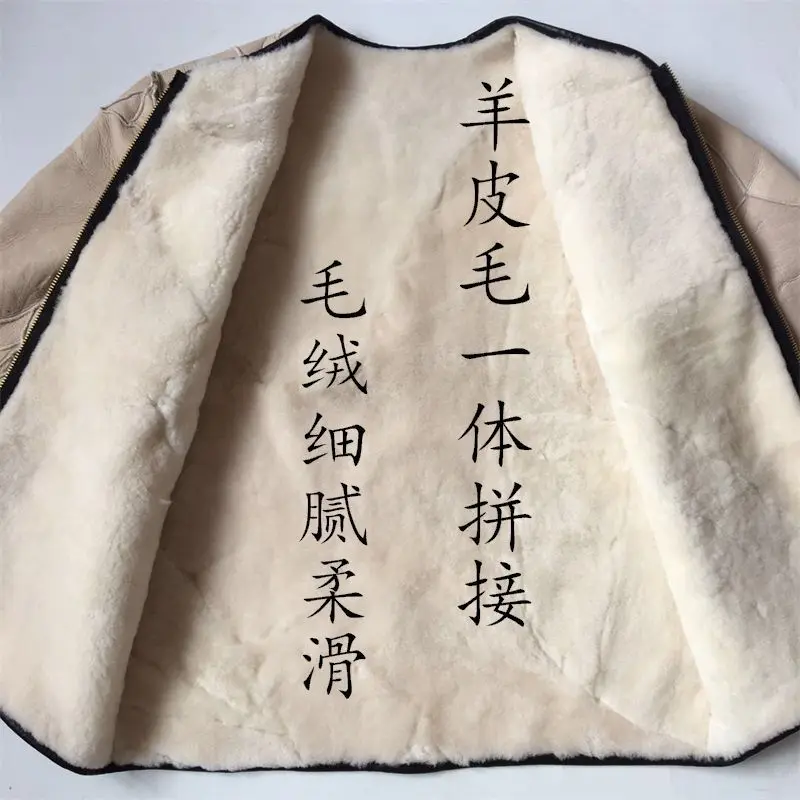 羊皮毛一体拼接
毛绒细腻柔滑